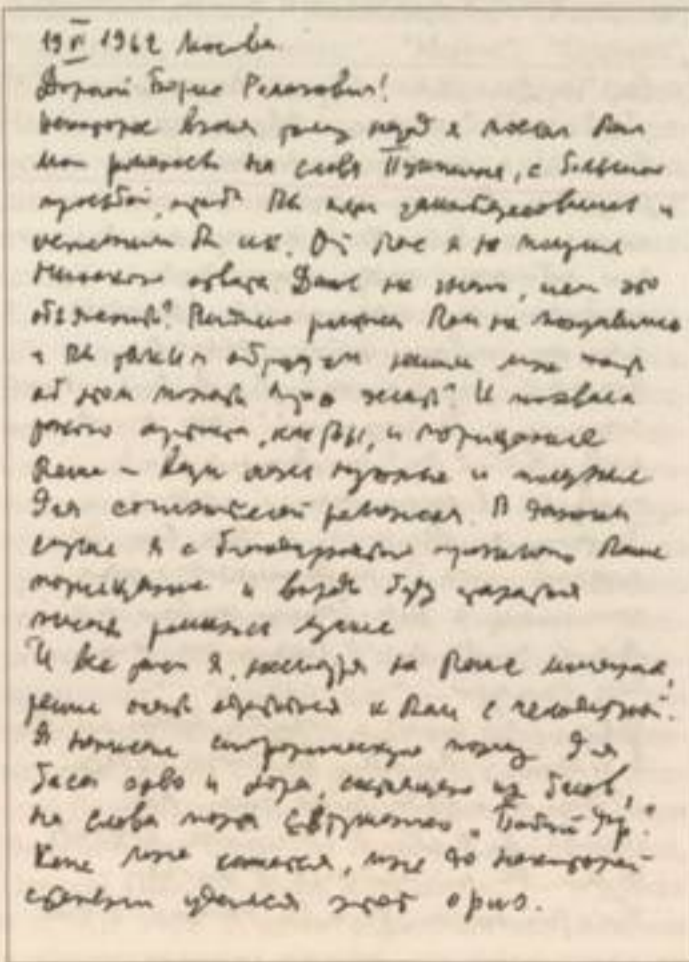 19 VI 1962 Москва
Дорогой Борис Романович!
Некоторое время тому назад я послал Вам
мои романсы на слова Пушкина, с большой
просьбой, чтоб Вы ими заинтересовались и
исполнили бы их. От Вас я не получил
никакого ответа. Даже не знаю, чем это
объяснить? Видимо романсы Вам не понравились
и Вы таким образом решили мне
об этом дать знать? И похвала
такого артиста, как Вы, и порицание
Ваше – вещи очень нужные и полезные
для сочинителей романсов. В данном
случае я с благодарностью принимаю Ваше
порицание и впредь буду стараться
писать романсы лучше
И все же я, несмотря на Ваше молчание,
решил опять обратиться к Вам с челобитной.
Я написал симфоническую поэму для
баса соло и хора, состоящего из басов,
на слова поэта Евтушенко „Бабий Яр“.
Как мне кажется, мне до некоторой
степени удался этот опус.